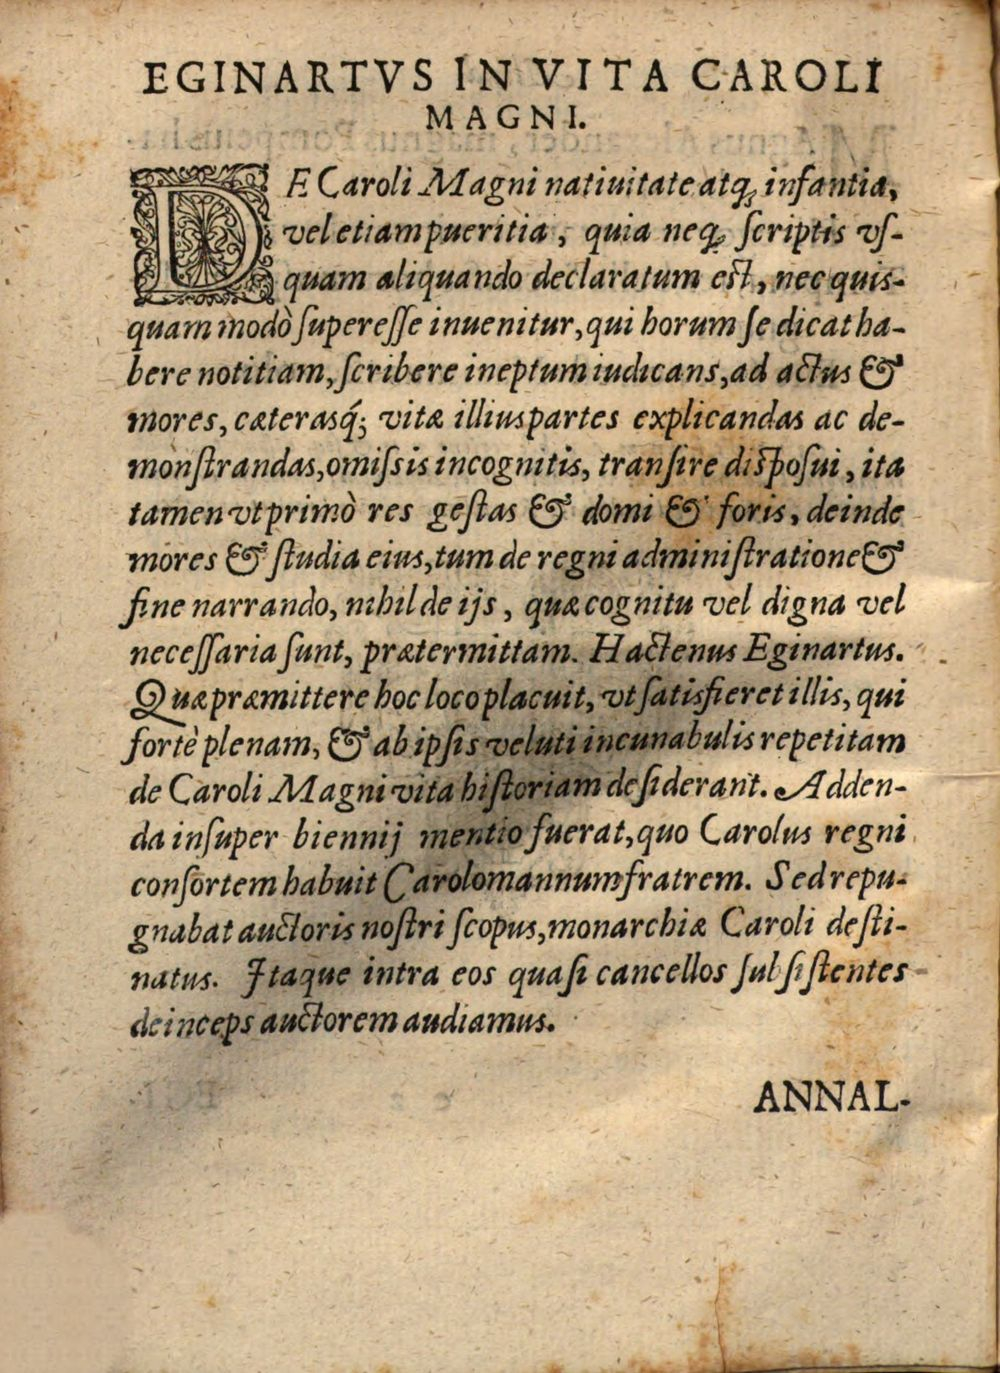 EGINARTVS IN VITA CAROLI
MAGNI.
DE Caroli Magni natiuitate atq; infantia,
vel etiam pueritia, quia neq; ſcriptis vſ-
quam aliquando declaratum eſt, nec quis-
quam modò ſupereſſe inuenitur, qui horum ſe dicat ha-
bere notitiam, ſcribere ineptum iudicans, ad actus &
mores, cæterasq́; vitæ illius partes explicandas ac de-
monſtrandas, omiſsis incognitis, tranſire diſpoſui, ita
tamen vt primò res geſtas & domi & foris, deinde
mores & ſtudia eius, tum de regni adminiſtratione &
fine narrando, nihil de ijs, quæ cognitu vel digna vel
neceſſaria ſunt, prætermittam. Hactenus Eginartus.
Quæ præmittere hoc loco placuit, vt ſatisfieret illis, qui
fortè plenam, & ab ipſis veluti incunabulis repetitam
de Caroli Magni vita hiſtoriam deſiderant. Adden-
da inſuper biennij mentio fuerat, quo Carolus regni
conſortem habuit Carolomannum fratrem. Sed repu-
gnabat auctoris noſtri ſcopus, monarchiæ Caroli deſti-
natus. Itaque intra eos quaſi cancellos ſubſiſtentes
deinceps auctorem audiamus.
ANNAL-